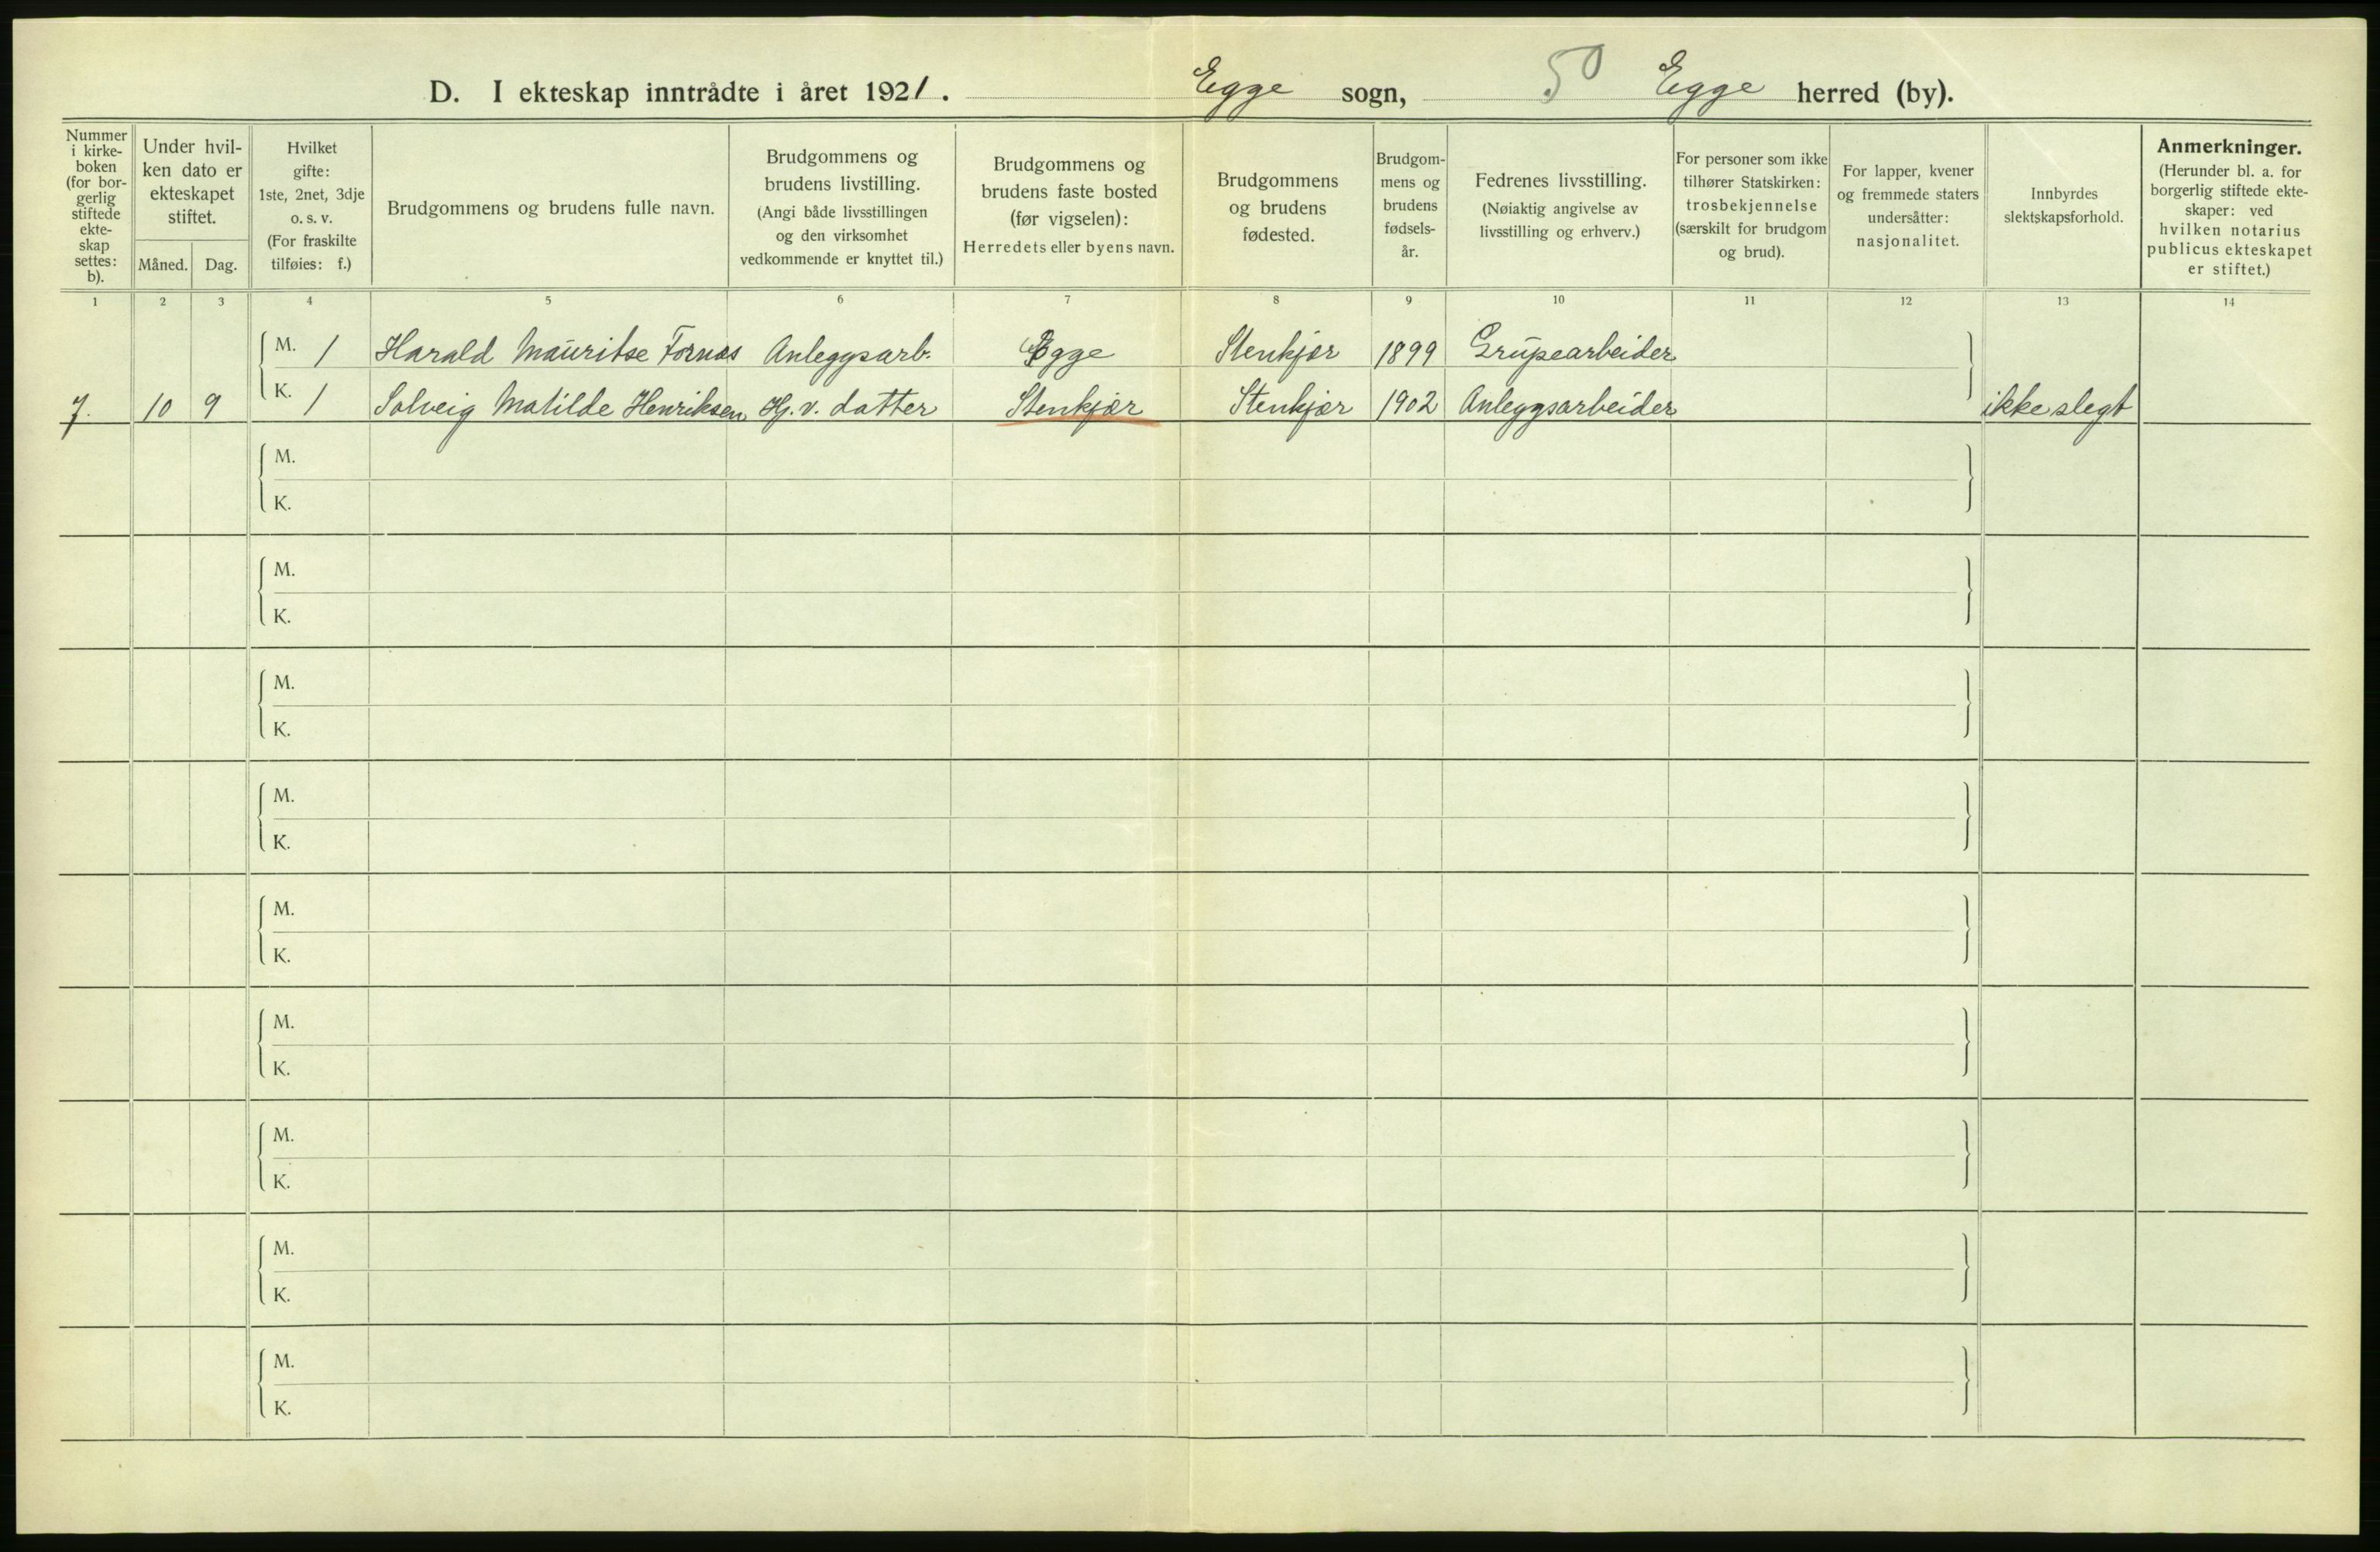 D. I ekteskap inntrådte i året 1921. Egge sogn, 50 Egge herred (by).
Nummer
i kirke-
boken
(for bor-
gerlig
stiftede
ekte-
skap
settes:
b).
Under hvil-
ken dato er
ekteskapet
stiftet.
Måned. Dag.
Hvilket
gifte:
1ste, 2net, 3dje
o. s. v.
(For fraskilte
tilføies: f.)
Brudgommens og brudens fulle navn.
Brudgommens og
brudens livstilling.
(Angi både livsstillingen
og den virksomhet
vedkommende er knyttet til.)
Brudgommens og
brudens faste bosted
(før vigselen):
Herredets eller byens navn.
Brudgommens
og brudens
fødested.
Brudgom-
mens og
brudens
fødsels-
år.
Fedrenes livsstilling.
(Nøiaktig angivelse av
livsstilling og erhverv.)
For personer som ikke
tilhører Statskirken:
trosbekjennelse
(særskilt for brudgom
og brud).
For lapper, kvener
og fremmede staters
undersåtter:
nasjonalitet.
Innbyrdes
slektskapsforhold.
Anmerkninger.
(Herunder bl. a. for
borgerlig stiftede ekte-
skaper: ved
hvilken notarius
publicus ekteskapet
er stiftet.)
1 2 3 4 5 6 7 8 9 10 11 12 13 14
M. 1 Harald Mauritse Fornes Anleggsarb. Egge Stenkjær 1899 Grupearbeider
7. 10 9 K. 1 Solveig Matilde Henriksen Hj. v. datter Stenkjær Stenkjær 1902 Anleggsarbeider ikke slegt
M.
K.
M.
K.
M.
K.
M.
K.
M.
K.
M.
K.
M.
K.
M.
K.
M.
K.